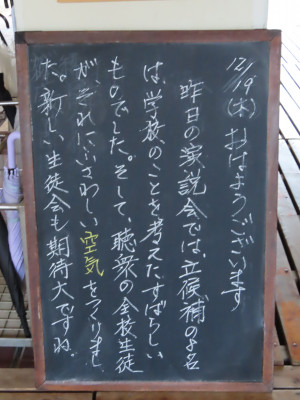 12/19(木) おはようございます
昨日の演説会では、立候補の8名
は、学校のことを考えたすばらしい
ものでした。そして、聴衆の全校生徒
がそれにふさわしい空気をつくりまし
た。新しい生徒会も期待大ですね。